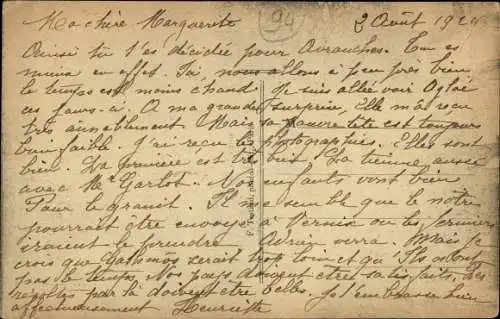 Ma chère Marguerite
94
3 Août 192
Ainsi tu t'es décidée pour Avranches. Tu es
mieux en effet. Ici, nous allons à peu près bien
le temps est moins chaud Je suis allée voir Aglaé
ces jours-ci. A ma grande surprise, Elle m'a reçu
très aimablement Mais sa pauvre tête est toujours
bien faible. J'ai reçu les photographies. Elles sont
bien. La première est très La tienne aussi
avec Me Garlot. Nos enfants vont bien
Pour le granit. Il me semble que le nôtre
pourrait être envoyé à Vernix ou les fermiers
iraient le prendre. verra. Mais je
crois que serait trop loin et qu'Ils
pas le temps. Nos pays doivent être satisfaits, les
récoltes par là doivent être belles. Je t'embrasse bien
affectueusement Henriette